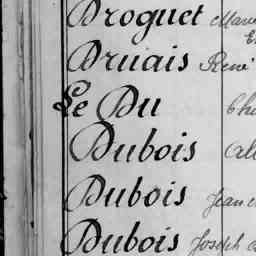 Droguet
Druais René
Le Du
Dubois
Dubois Jean
Dubois Joseph